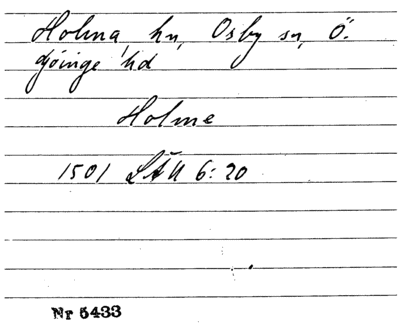 Holma hn, Osby sn, Ö.
Göinge hd
Holme
1501 LÄU 6:20
Nr 5433